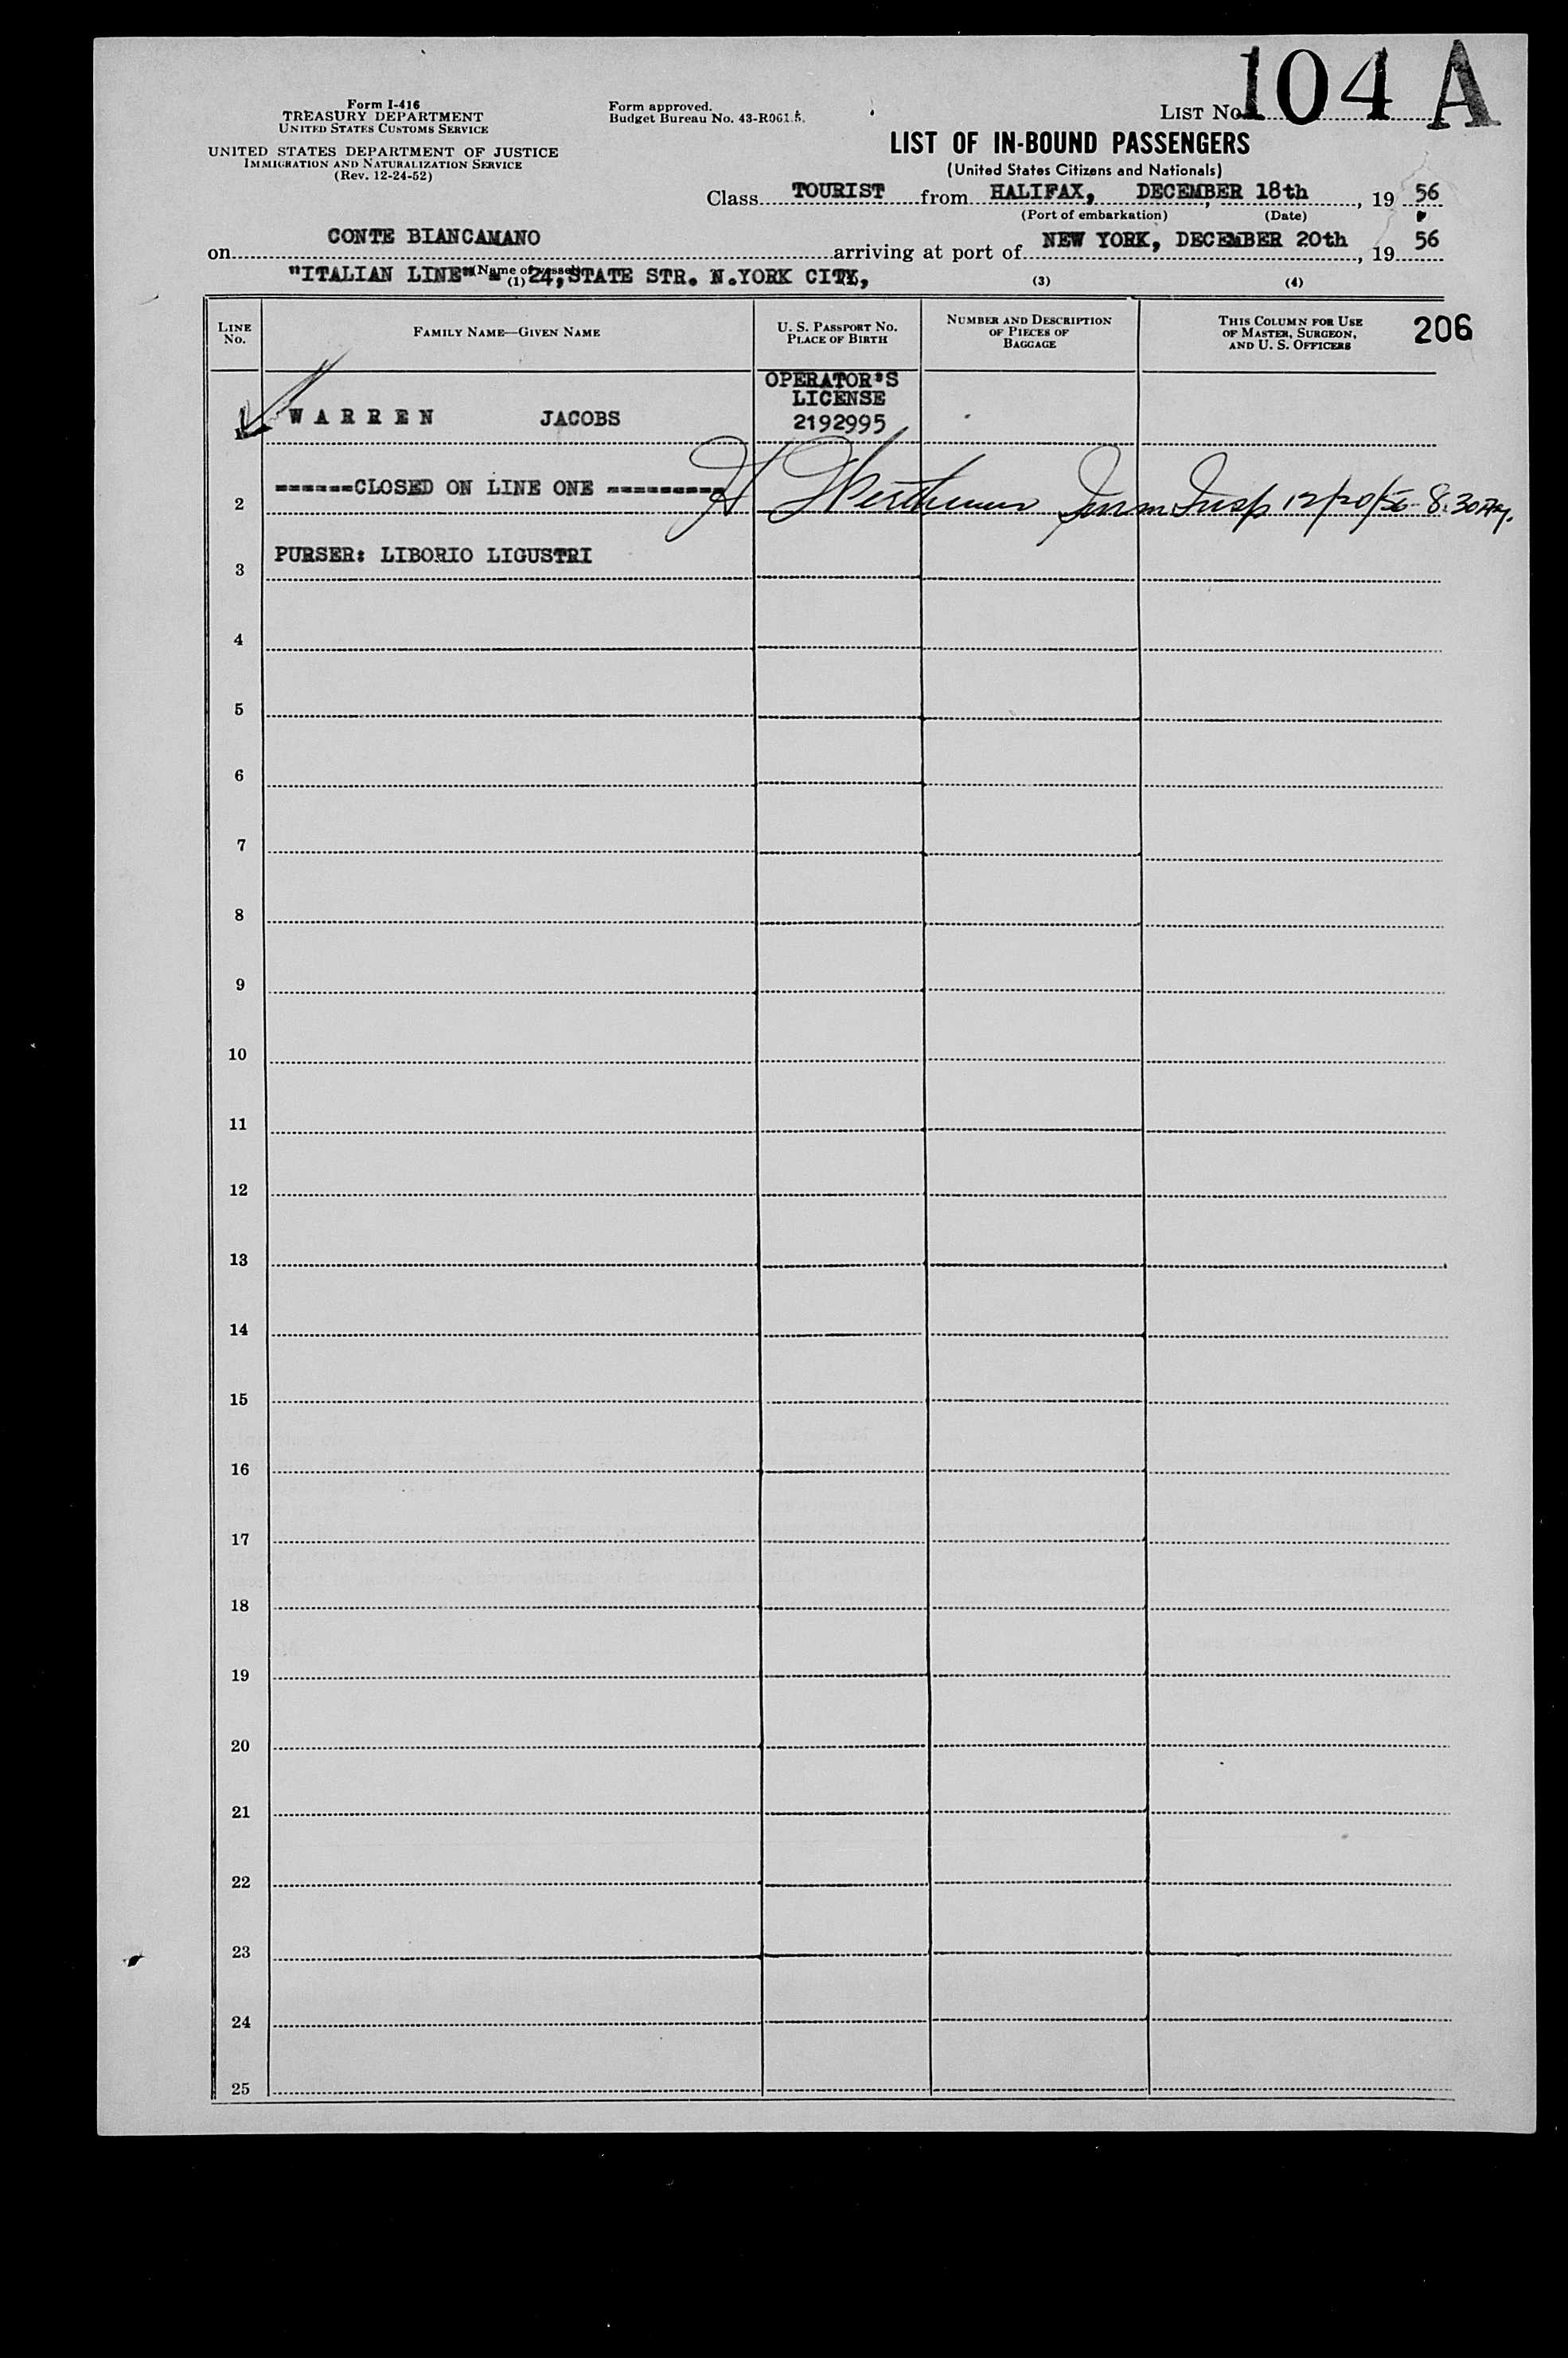 104 A
Form I-416
TREASURY DEPARTMENT
UNITED STATES CUSTOMS SERVICE
UNITED STATES DEPARTMENT OF JUSTICE
IMMIGRATION AND NATURALIZATION SERVICE
(Rev. 12-24-52)
Form approved.
Budget Bureau No. 43-R061.5.
LIST No.
LIST OF IN-BOUND PASSENGERS
(United States Citizens and Nationals)
Class TOURIST from HALIFAX, DECEMBER 18th, 19 56
(Port of embarkation) (Date)
on CONTE BIANCAMANO arriving at port of NEW YORK, DECEMBER 20th, 19 56
(Name of vessel)
"ITALIAN LINE" - 24, STATE STR. N.YORK CITY,
(1) (3) (4)
LINE No. FAMILY NAME—GIVEN NAME U. S. PASSPORT NO. PLACE OF BIRTH NUMBER AND DESCRIPTION OF PIECES OF BAGGAGE THIS COLUMN FOR USE OF MASTER, SURGEON, AND U. S. OFFICERS 206
1 WARREN JACOBS OPERATOR'S LICENSE 2192995
2 ------CLOSED ON LINE ONE --------- H Imm Insp 12/20/56 8:30 AM.
3 PURSER: LIBORIO LIGUSTRI
4
5
6
7
8
9
10
11
12
13
14
15
16
17
18
19
20
21
22
23
24
25